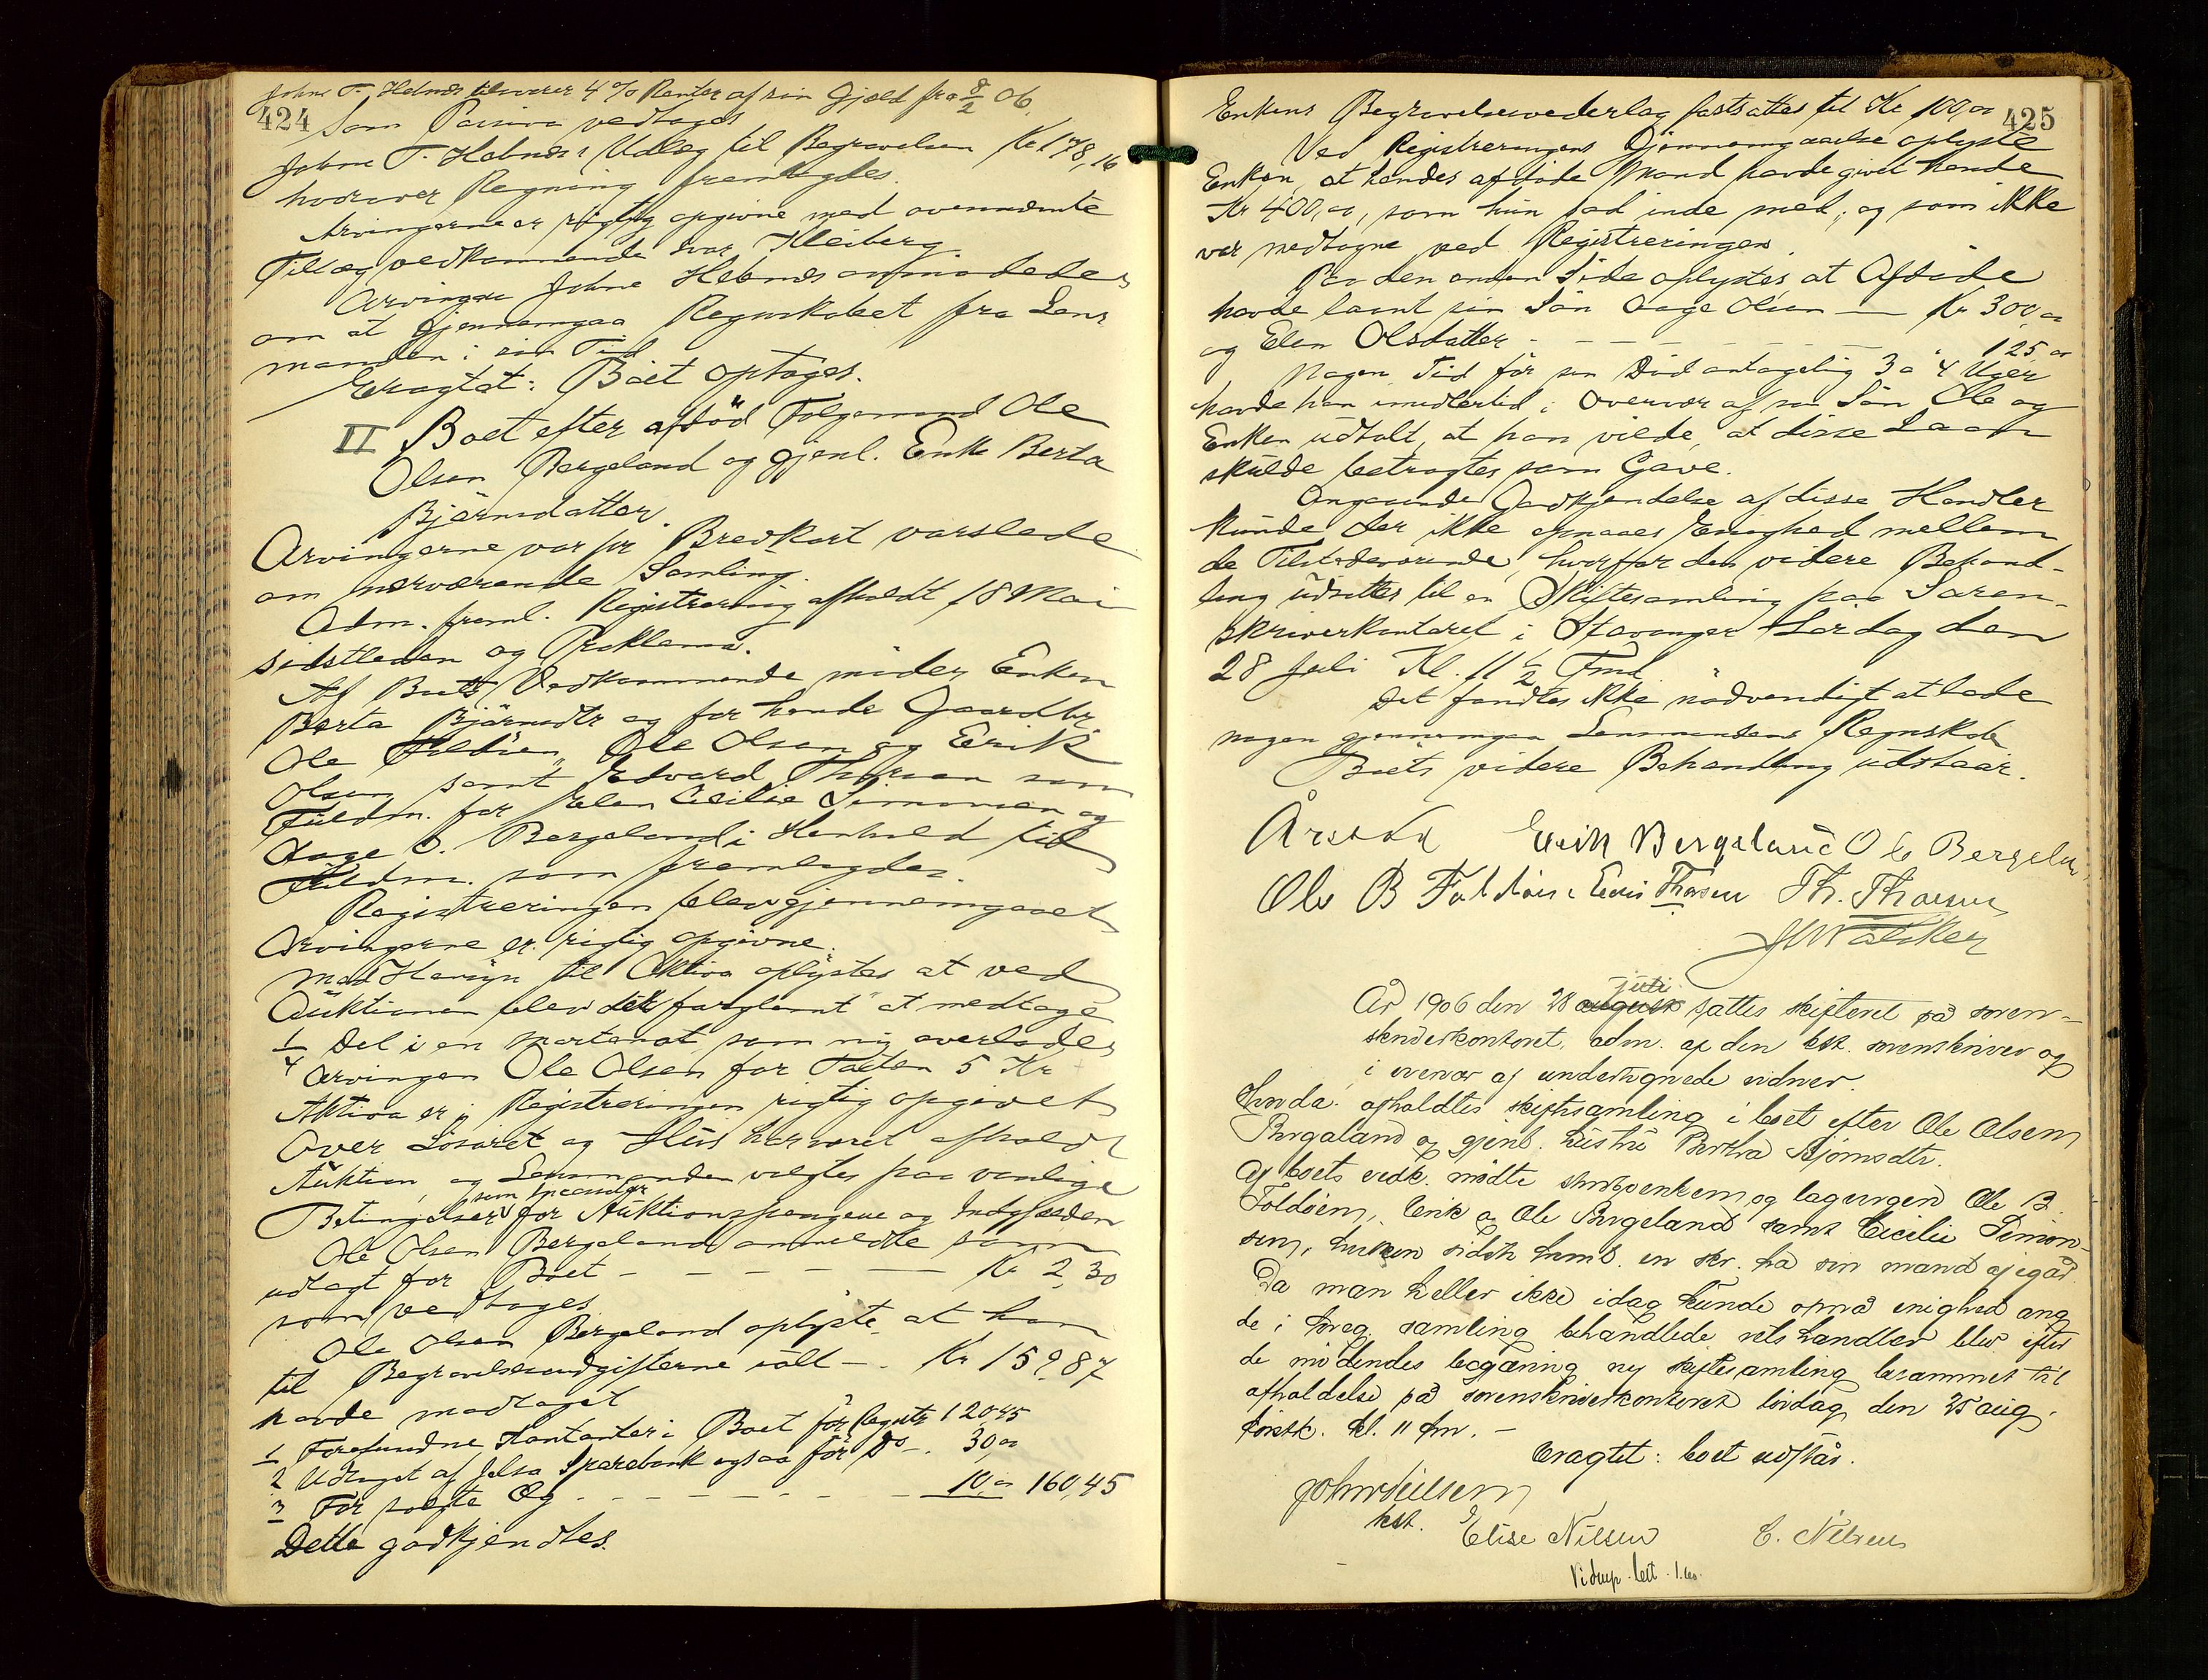 Johne T. Hebnes tilsvarer 4 % Renter af sin Gjæld fra 8/2 06.
424
Som Passiva vedtages
Johne T. Hebnes's Udlæg til Begravelsen Kr 178,16
hvorover Regning fremlagdes.
Arvingerne er rigtig opgivne med ovennævnte
Tillæg vedkommende Ivar Kleiberg
Arvingen Johne Hebnes anmodedes
om at gjennemgaa Regnskabet fra Lens
manden i sin Tid
Eragtet: Boet optages.
II Boet efter afdöd Fölgemand Ole
Olsen Bergeland og gjenl. Enke Berta
Bjørnsdatter.
Arvingerne var pr Brevkort varslede
om nærværende Samling.
Adm. freml. Registrering afholdt 18 Mai
sidstleden og Proklama.
Af Boets Vedkommende møder Enken
Berta Bjørnsdtr og for hende Gaardbr
Ole Foldöen, Ole Olsen og Erik
Olsen samt Edvard Thorsen som
Fuldm. for Elen Cecilie Simonsen og
Aage O. Bergeland i Henhold til
Fuldm. som fremlagdes.
Registreringen blev gjennemgaaet
Arvingerne er rigtig opgivne.
Med Hensyn til Aktiva oplystes at ved
Auktionen blev det forglemt at medtage
1/4 Del i en som nu overlades
Arvingen Ole Olsen for Taxten 5 Kr
Aktiva er i Registreringen rigtig opgivet
Over Lösöret og Hus har været afholdt
Auktion og Lensmanden valgtes paa vanlige
som Inkassator
Betingelser for Auktionspengene og Indgjælden
Ole Olsen Bergeland anmeldte som
udlagt for Boet – – – – – Kr 2,30
som vedtages
Ole Olsen Bergeland oplyste at han
til Begravelsesudgifterne ialt – . Kr 159,87
havde modtaget
1 Forefundne Kontanter i Boet för Registr 120,45
2 Udtaget af Jelsa Sparebank ogsaa för Do – . 30,00
3 For solgte Æg – – – – – – 10,00 160,45
Dette godkjendtes.
425
Enkens Begravelsesvederlag fastsattes til Kr 100,00
Ved Registreringens Gjennemgaaelse oplyste
Enken, at hendes afdöde Mand havde givet hende
Kr 400,00, som hun sad inde med, og som ikke
var medtagne ved Registreringen.
Paa den anden Side oplystes at Afdöde
havde laant sin Sön Aage Olsen — Kr 300,00
og Elen Olsdatter – – – – – – 125,00
Nogen Tid för sin Död antagelig 3 a 4 Uger
havde han imidlertid i Overvær af sin Sön Ole og
Enken udtalt, at han vilde, at disse Laan
skulde betragtes som Gave.
Angaaende Godkjendelse af disse Handler
kunde der ikke opnaaes Enighed mellem
de Tilstedeværende, hvorfor den videre Behand-
ling udsattes til en Skiftesamling paa Soren-
skriverkontoret i Stavanger Lørdag den
28 Juli Kl. 11 1/2 Fmd.
Det fandtes ikke nödvendigt at lade
nogen gjennemgaa Lensmandens Regnskab
Boets videre Behandling udstaar.
Årstad Erik Bergeland Ole Bergeland
Ole B Foldöen Edv. Thorsen Th. Thorsen
H Walcker
juli
År 1906 den 28 august sattes skifteret på soren-
skriverkontoret, adm. af den kst. sorenskriver og
i overvær af undertegnede vidner.
Hvoda. afholdtes skiftesamling i boet efter Ole Olsen
Bergeland og gjenl. hustru Bertha Bjørnsdtr.
Af boets vedk. mødte enken og lagvergen Ole B.
Foldöen, Erik og Ole Bergeland samt Cecilie Simon-
sen, hvilken sidste freml. en skr. fra sin mand af igår.
Da man heller ikke idag kunde opnå enighed ang
de i foreg. samling behandlede retshandler blev efter
de mødendes begjæring ny skiftesamling berammet til
afholdelse på sorenskriverkontoret lørdag den 25 aug.
førstk. kl. 11 fm. –
Eragtet: boet udstår.
John Nilsen
kst. Elise Nilsen C. Nilsen